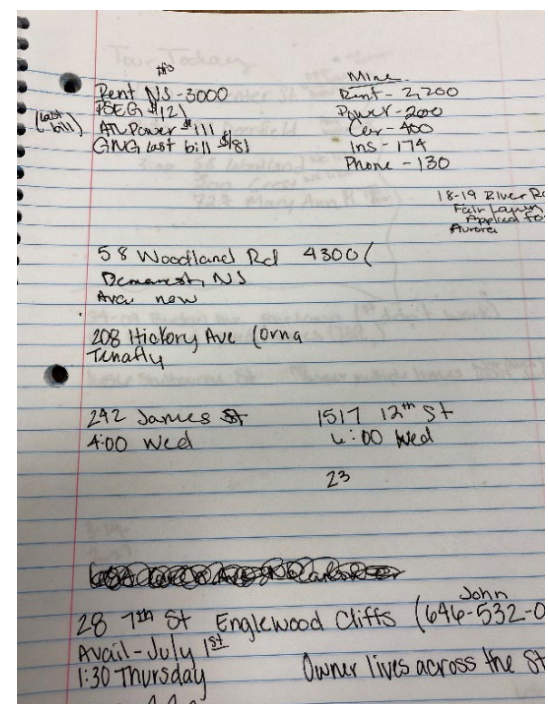 Rent NJ - 3000
PSEG $121
(last bill)
ATL Power $111
GNG last bill $181
Mine
Rent - 2,200
Power - 200
Car - 400
Ins - 174
Phone - 130
18-19 River Rd
Fair Lawn
Applied for
Aurora
58 Woodland Rd 4300(
Demarest, NJ
Avai now
208 Hickory Ave (Orna
Tenafly
242 James St
4:00 Wed
1517 12th St
6:00 Wed
23
John
28 7th St Englewood Cliffs (646-532-0
Avail - July 1st
1:30 Thursday
Owner lives across the St